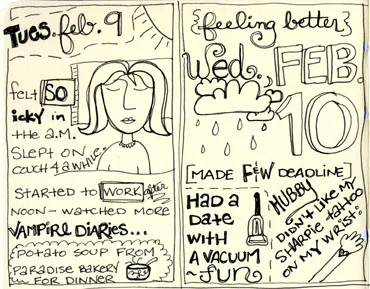 Tues. feb. 9
felt SO
icky in
the a.m.
Slept on
couch 4 a while.
Started to WORK after
noon - watched more
Vampire Diaries...
Potato soup from
Paradise Bakery
for dinner
{feeling better}
Wed., FEB.
10
[MADE F&W DEADLINE]
HAD A
DATE
WITH
A VACUUM
~fun
HUBBY
DIDN'T LIKE MY
SHARPIE TATTOO
ON MY WRIST!